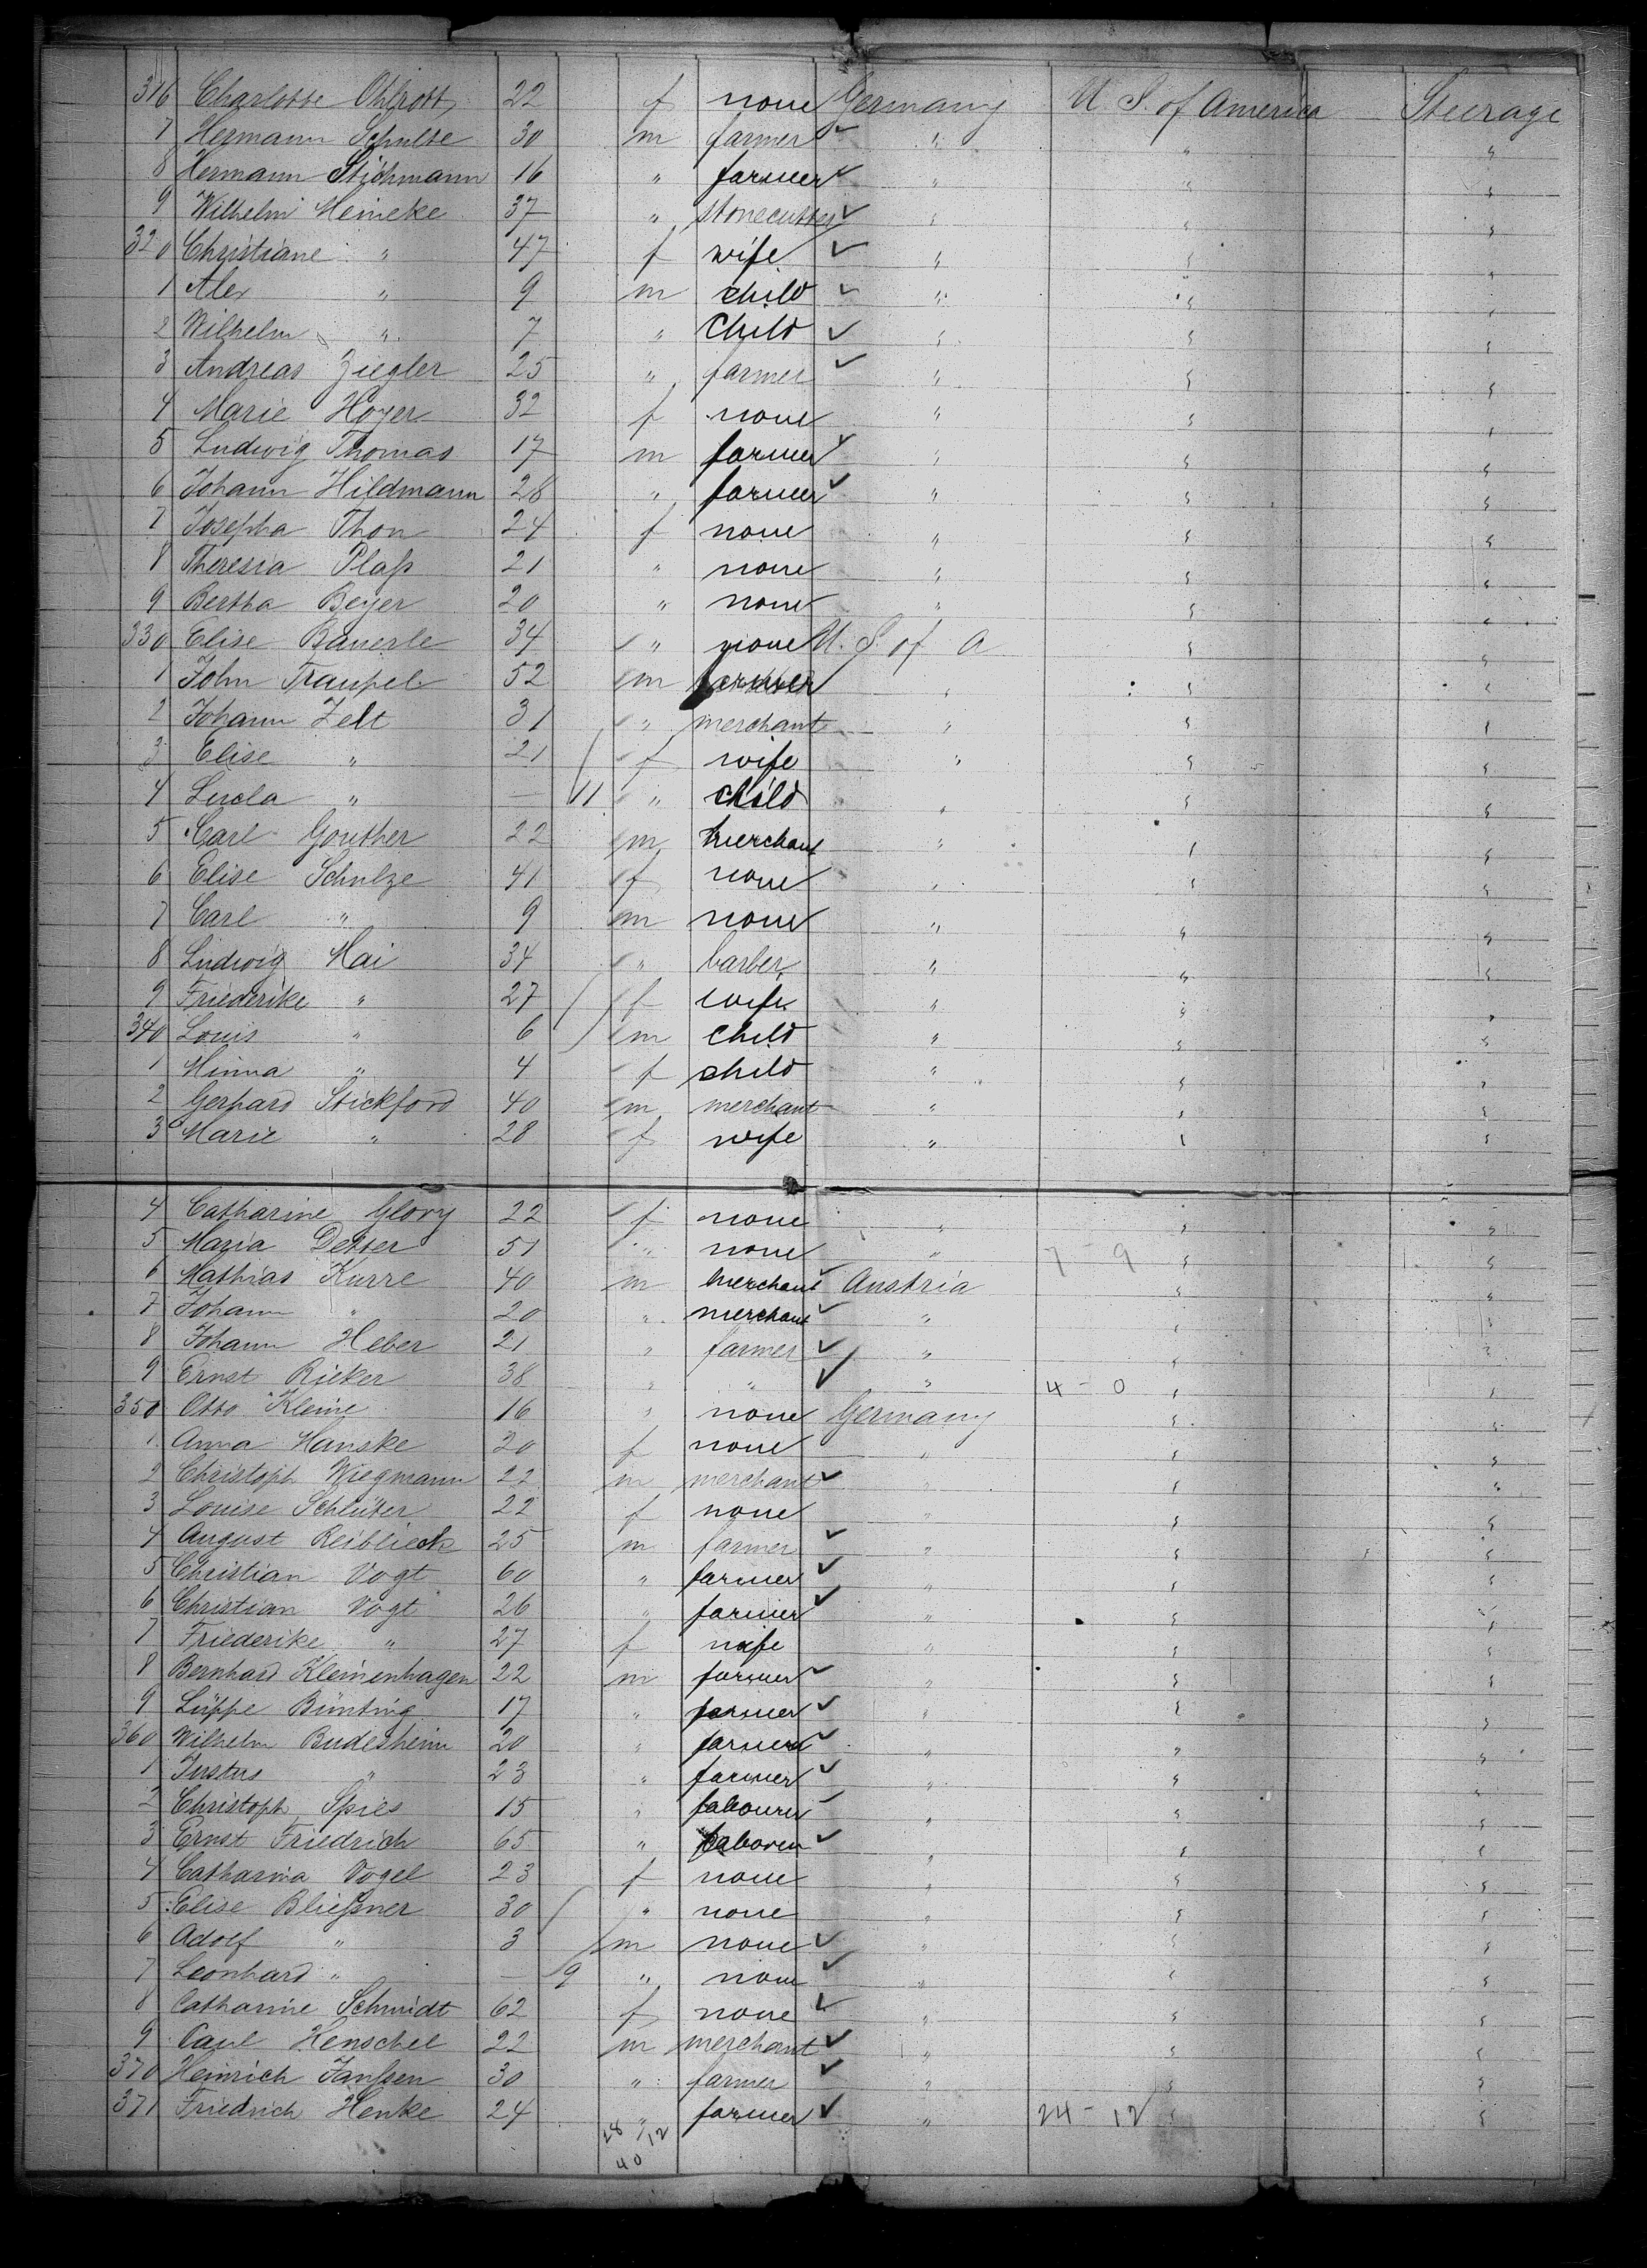 316 Charlotte Ohlrott 22 f none Germany U. S. of America Steerage
7 Hermann Schulte 30 m farmer " " "
8 Hermann Stichmann 16 " farmer " " "
9 Wilhelm Meineke 37 " stonecutter " " "
320 Christiane " 47 f wife " " "
1 Alex " 9 m child " " "
2 Wilhelm " 7 " child " " "
3 Andreas Ziegler 25 " farmer " " "
4 Marie Hoyer 32 f none " " "
5 Ludwig Thomas 17 m farmer " " "
6 Johann Hildmann 28 " farmer " " "
7 Josepha Thon 24 f none " " "
8 Theresia Plaß 21 " none " " "
9 Bertha Beyer 20 " none " " "
330 Elise Bauerle 34 " none U. S. of A " "
1 John Traupel 52 m farmer " " "
2 Johann Zelt 31 " merchant " " "
3 Elise " 21 f wife " " "
4 " — 11 " child " " "
5 Carl Gouther 22 m merchant " " "
6 Elise Schulze 41 f none " " "
7 Carl " 9 m none " " "
8 Ludwig Mai 34 " barber " " "
9 Friederike " 27 f wife " " "
340 Louis " 6 m child " " "
1 Minna " 4 f child " " "
2 Gerhard Stickford 40 m merchant " " "
3 Marie " 28 f wife " " "
4 Catharine Glory 22 f none " " "
5 Maria Detter 51 " none " 7 - 9 " "
6 Mathias Kurre 40 m merchant Austria " "
7 Johann " 20 " merchant " " "
8 Johann Heber 21 " farmer " " "
9 Ernst Rieker 38 " " " 4 - 0 " "
350 Otto Kleine 16 " none Germany " "
1 Anna Hanske 20 f none " " "
2 Christoph Wiegmann 22 m merchant " " "
3 Louise Schlüter 22 f none " " "
4 August Reiblieck 25 m farmer " " "
5 Christian Vogt 60 " farmer " " "
6 Christian Vogt 26 " farmer " " "
7 Friederike " 27 f wife " " "
8 Bernhard Kleinenhagen 22 m farmer " " "
9 Lüppe Bünting 17 " farmer " " "
360 Wilhelm Budesheim 20 " farmer " " "
1 Justus " 23 " farmer " " "
2 Christoph Spies 15 " labourer " " "
3 Ernst Friedrich 65 " " " "
4 Catharina Vogel 23 f none " " "
5 Elise Bließner 30 " none " " "
6 Adolf " 3 m none " " "
7 Leonhard " — 9 " none " " "
8 Catharine Schmidt 62 f none " " "
9 Paul Henschel 22 m merchant " " "
370 Heinrich Janßen 30 " farmer " " "
371 Friedrich Henke 24 " farmer " 24 - 12 " "
28 / 12
40